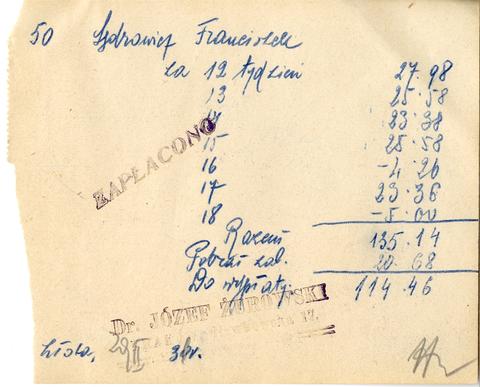 50 Szdrowicz Franciszek
za 12 tydzień 27.98
13 25.58
14 23.38
15 25.58
16 -4.26
17 23.36
18 -5.00
Razem 135.14
Pobrał zal. 20.68
Do wypłaty 114.46
ZAPŁACONO
Dr. JÓZEF ŻUROWSKI
17.